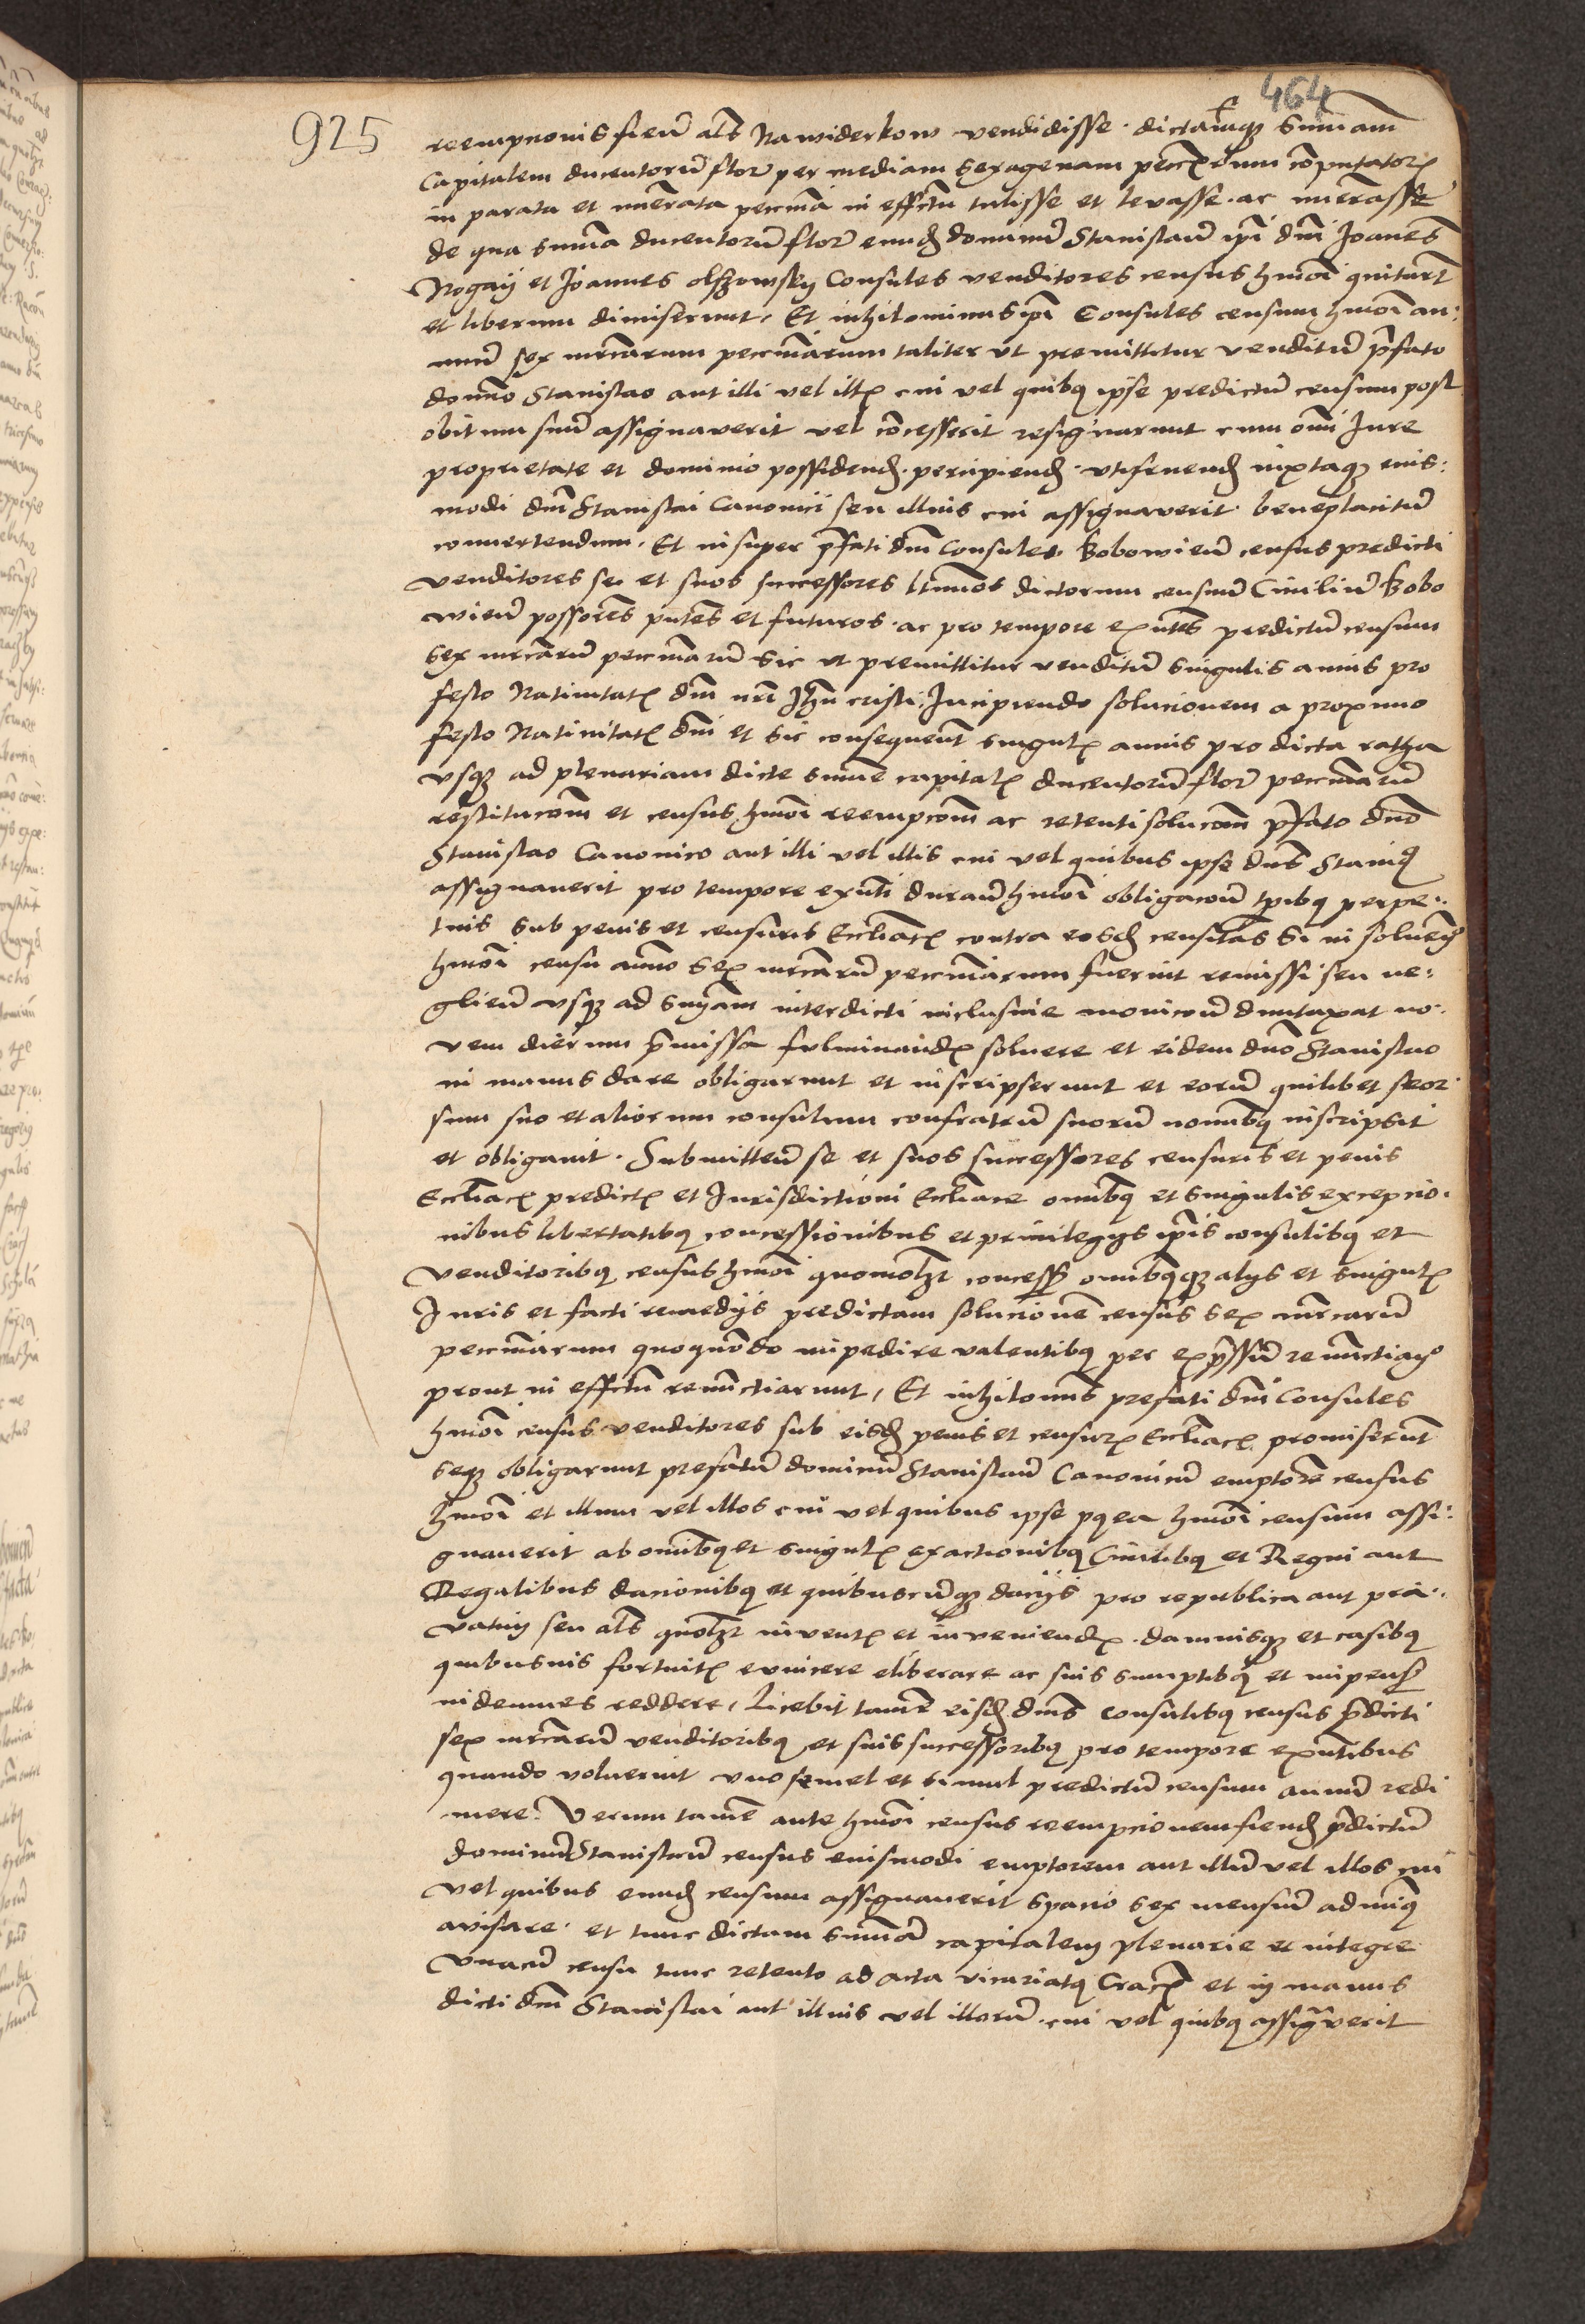 464
925
reempcionis fiend als Nawiderkow vendidisse. dictamqz summam
Capitalem ducentoru flor per mediam sexagenam pecc dum computator
in parata et nuerata pecunia in effectu tulisse et levasse. ac nuerasse
de qua summa ducentoru flor eund dominu Stanislau ipi dni Joanes
Nogaij et Joannes olszowskij Consules venditores census hmoi quitarut
et liberum dimiserunt, Et nihilominus ipi Consules censum hmoi an:
nuu sex mrcarum pecuniarum taliter ut premittitur venditu prefato
domino Stanislao aut illi vel illis cui vel quibus ipse predictu censum post
obitum suu assignaverit vel concesserit resignarunt cum omni Jure
proprietate et dominio possidend. percipiend. utifruend iuxtaqz eius:
modi dni Stanislai Canonici seu illius cui assignaverit beneplacitu
convertendum. Et insuper prefati dni Consules Bobowien census predicti
venditores se et suos successores ltimos dictorum censuu Civiliu Bobo
wien possores pntes et futuros. ac pro tempore exntes predictu censum
sex mrcaru pecuniaru sic ut premittitur venditu singulis annis pro
festo Nativitatis dni nri Jhu cristi: Incipiendo solucionem a proximo
festo Nativitatis dni et sic consequent singulis annis pro dicta ratha
usqz ad plenariam dicte summe capitalis ducentoru flor pecuniaru
restitucom et census hmoi reempcom ac retenti solucom prefato dno
Stanislao Canonico aut illi vel illis cui vel quibus ipse dns Stanisl
assignaverit pro tempore exnti duran hmoi obligacion tpibus perpe:
tuis sub penis et censuris Ecclasticis contra eosd censitas si in solven
hmoi censu annuo sex mrcaru pecuniarum fuerint remissi seu ne:
glien usqz ad suam interdicti inclusive monicion dumtaxat no:
vem dierum premissa fulminandis solvere et eidem dno Stanislao
in manus dare obligarunt et inscripserunt et eoru quilibet seor
sum suo et aliorum consulum confratru suoru nominibus inscripsit
et obligavit. Submitten se et suos successores censuris et penis
Eccliacis predictis et Jurisdictioni Eccliace omnibus et singulis excepcio.
nibus libertatibus concessionibus et privilegijs ipis consulibus et
venditoribus census hmoi quomolzt concess omnibusqz alijs et singulis
Juris et facti remedijs predictam solucione census sex mrcaru
pecuniarum quoquomodo impedire valentibus per expressu renunctiand
prout in effectu renunctiarunt, Et nihilominus prefati dni Consules
hmoi census venditores sub eisd penis et censuris Eccliacis promiserunt
seqz obligarunt prefatu dominu Stanislau Canonicu emptore census
hmoi et illum vel illos cui vel quibus ipse postea hmoi censum assi:
gnaverit ab omnibus et singulis exactionibus Civilibus et Regni aut
Regalibus dacionibus et quibuscumqz dacijs pro republica aut pri:
vatim seu als quolzt inventis et inveniendis. damnisqz et casibus
quibusvis fortuitis evincere eliberare ac suis sumptibus et impens
indemnes reddere, Licebit tame eisd dnis consulibus census predicti
sex mrcaru venditoribus et suis successoribus pro tempore exntibus
quando voluerint uno semel et simul predictu censum annuu redi
mere. Verum tame ante hmoi census reempcionem fiend predictu
dominu Stanislau census eiusmodi emptorem aut illu vel illos cui
vel quibus eund censum assignaverit spacio sex mensiu ad minus
avisare. et tunc dictam summa capitalem plenarie et integre
unacu censu tunc retento ad acta vicariatus Cracz et in manus
dicti dni Stanislai aut illius vel illoru cui vel quibus assignaverit